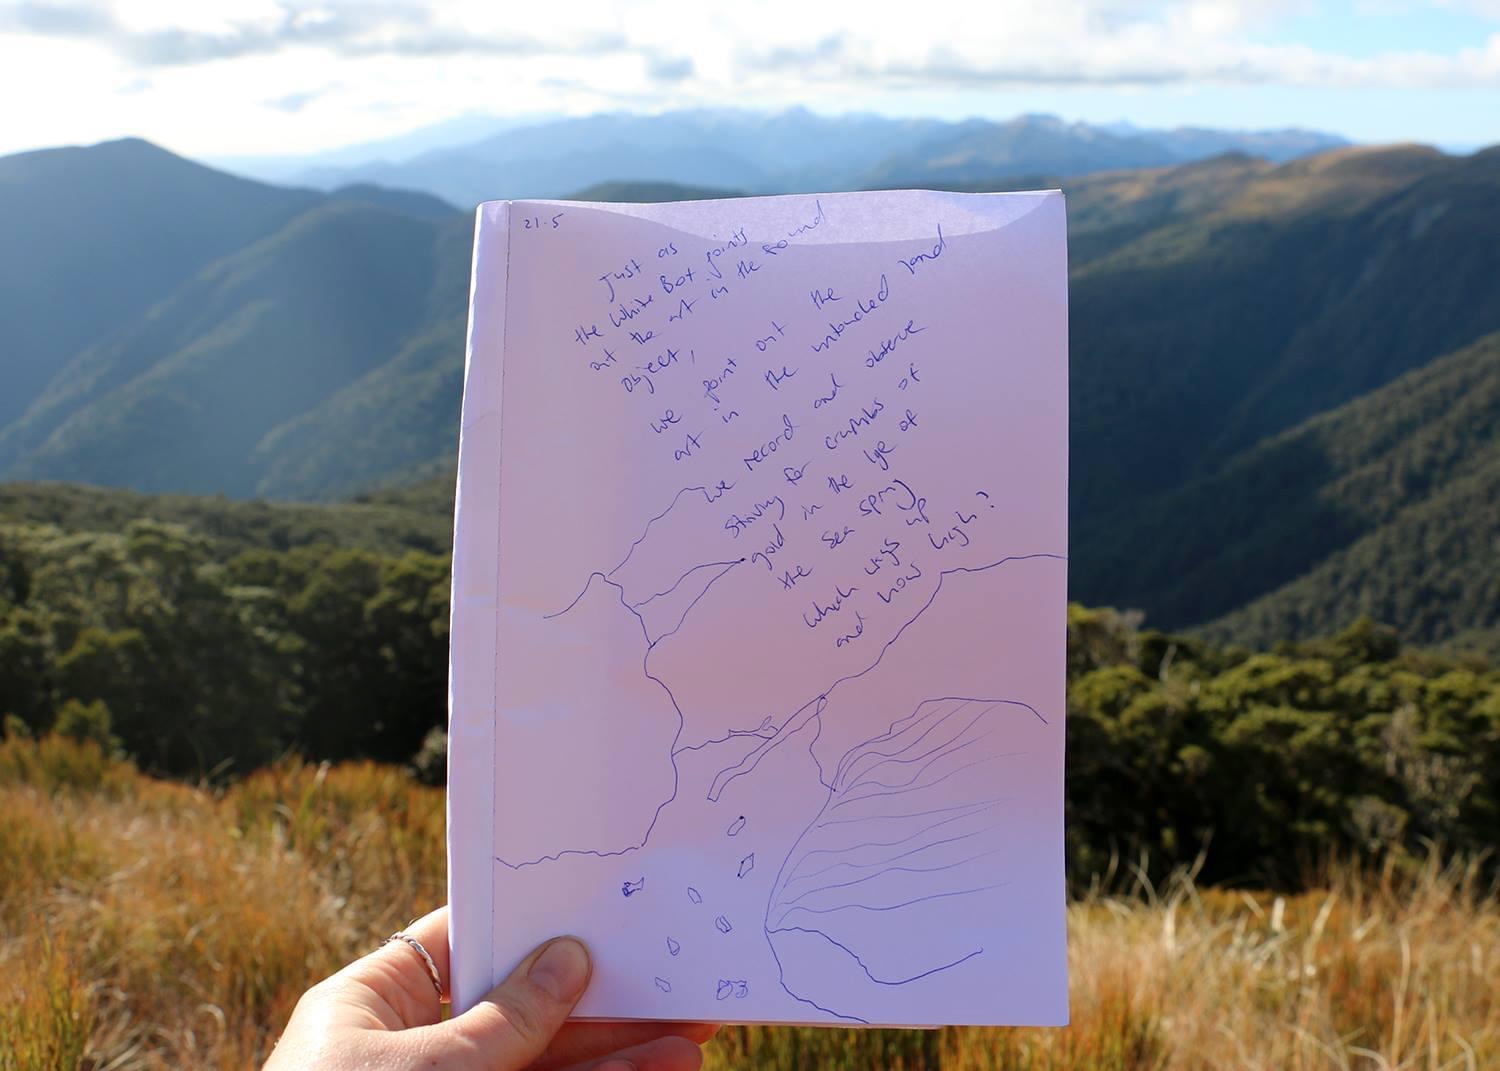 21.5
Just as
the White Box points
out the art in the found
object,
we point out the
art in the untouched land
We record and observe
Starving for crumbles of
gold in the lye of
the sea spray
Which ways up
and how high?